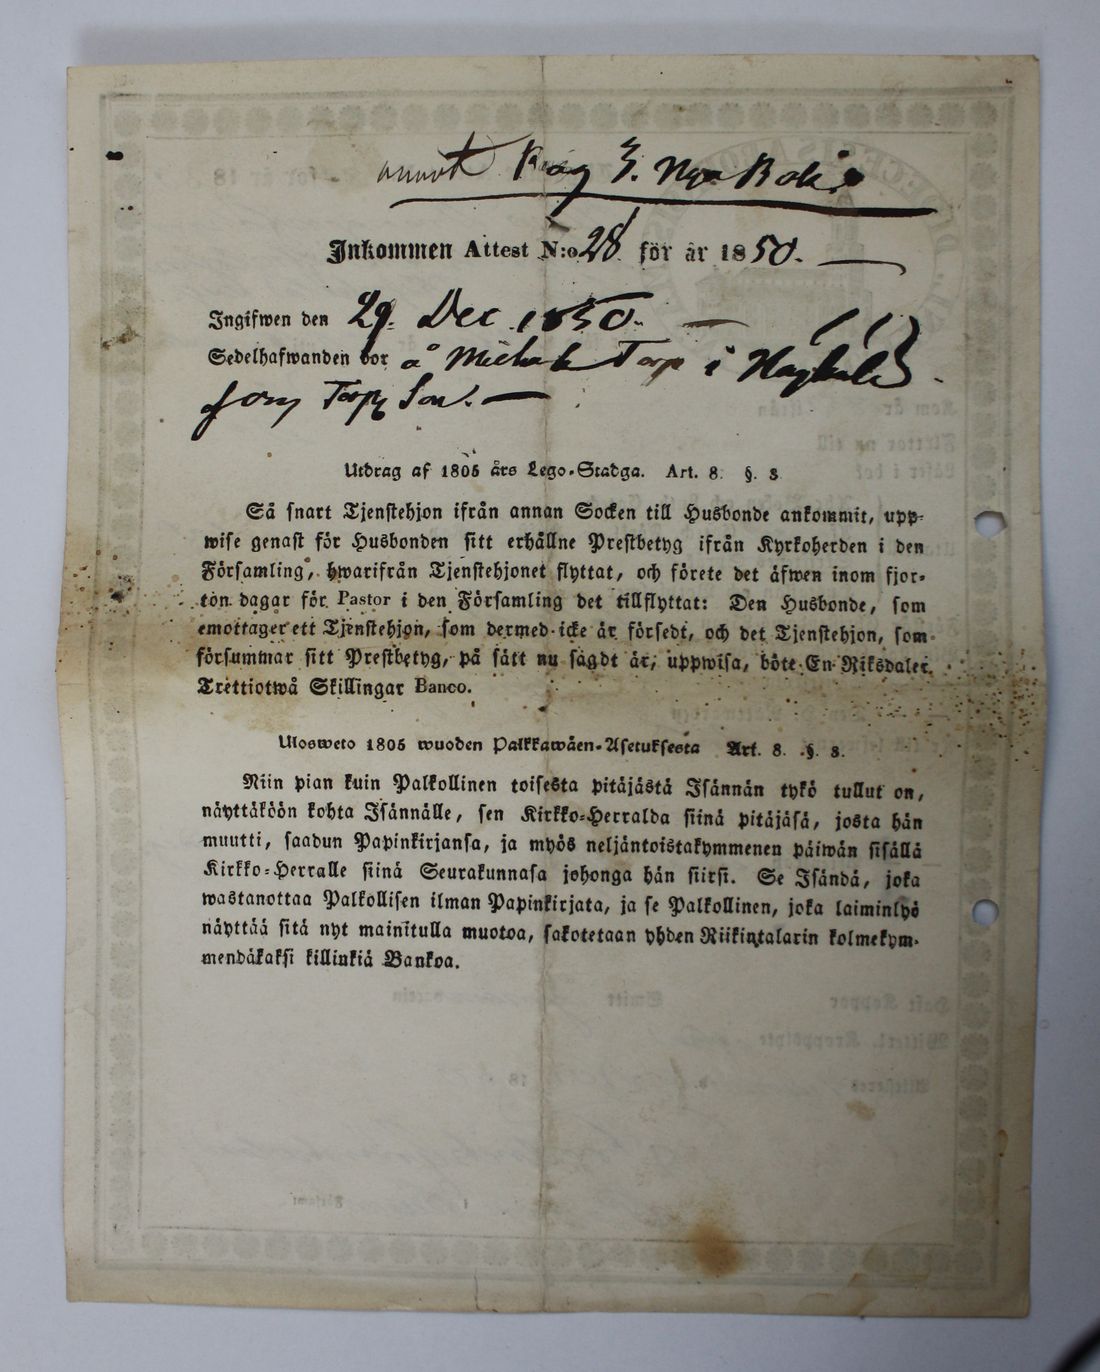 annot Pag 3. Nya Boken
Inkommen Attest N:o 28 för år 1850.
Ingifwen den 29. Dec. 1850.
Sedelhafwanden bor å Torp i
som Torp Son.
Utdrag af 1805 års Lego-Stadga. Art. 8. §. 8.
Så snart Tjenstehjon ifrån annan Socken till Husbonde ankommit, upp-
wise genast för Husbonden sitt erhållne Prestbetyg ifrån Kyrkoherden i den
Församling, hwarifrån Tjenstehjonet flyttat, och förete det äfwen inom fjor-
ton dagar för Pastor i den Församling det tillflyttat: Den Husbonde, som
emottager ett Tjenstehjon, som dermed icke är försedt, och det Tjenstehjon, som
försummar sitt Prestbetyg, på sätt nu sagdt är, uppwisa, böte En Riksdaler
Trettiotwå Skillingar Banco.
Ulosweto 1805 wuoden Palkkawäen-Asetuksesta Art. 8. §. 8.
Niin pian kuin Palkollinen toisesta pitäjästä Isännän tykö tullut on,
näyttäköön kohta Isännälle, sen Kirkko-Herralda siinä pitäjäsä, josta hän
muutti, saadun Papinkirjansa, ja myös neljäntoistakymmenen päiwän sisällä
Kirkko-Herralle siinä Seurakunnasa johonga hän siirsi. Se Isändä, joka
wastanottaa Palkollisen ilman Papinkirjata, ja se Palkollinen, joka laiminlyö
näyttää sitä nyt mainitulla muotoa, sakotetaan yhden Riikintalarin kolmekym-
mendäkaksi killinkiä Bankoa.